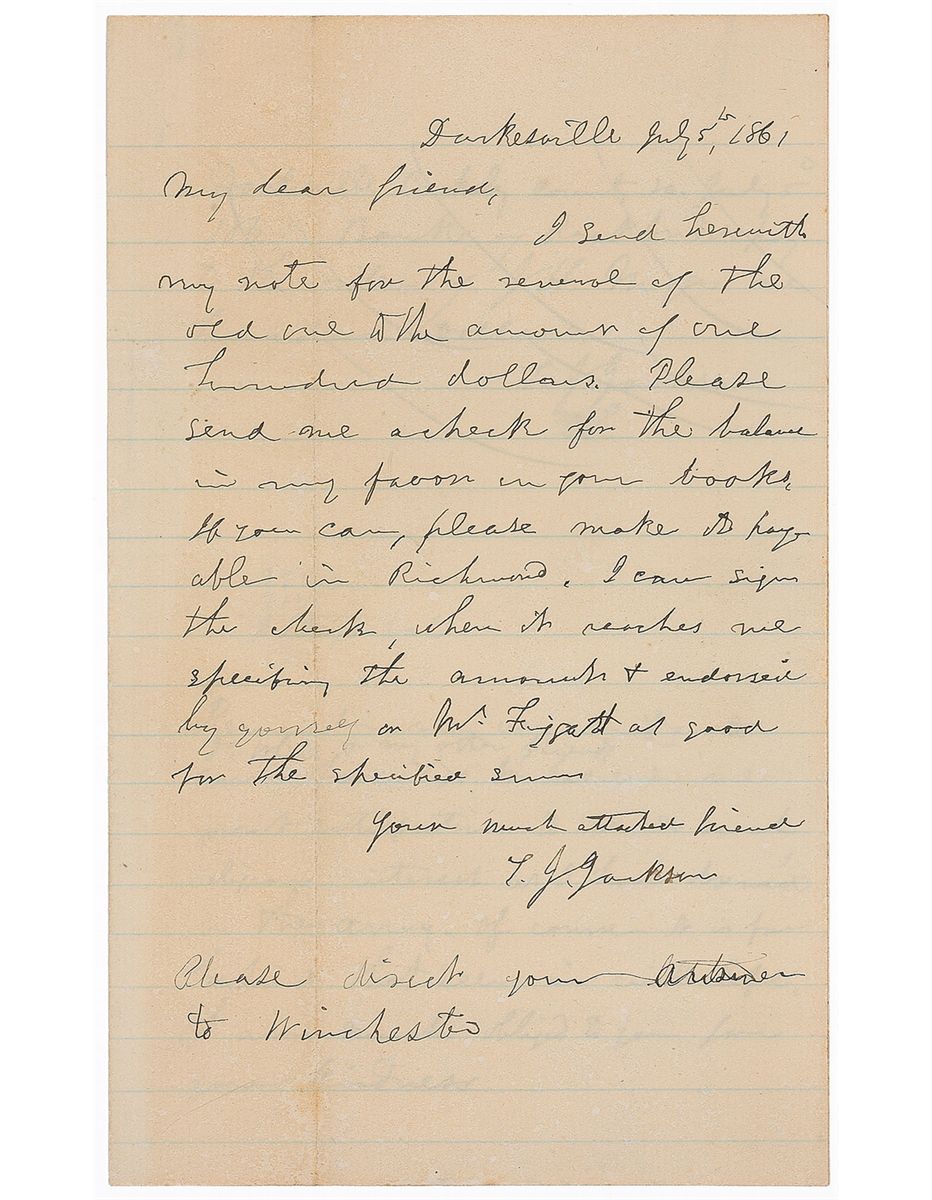 Darkesville July 5th, 1861
My dear friend,
I send herewith
my note for the renewal of the
old one to the amount of one
hundred dollars. Please
send me a check for the balance
in my favor in your books,
If you can, please make it pay-
able in Richmond. I can sign
the check, when it reaches me
specifying the amount & endorsed
by yourself or Mr. Figgatt as good
for the specified sum
Your much attached friend
T. J. Jackson
Please direct your answer
to Winchester